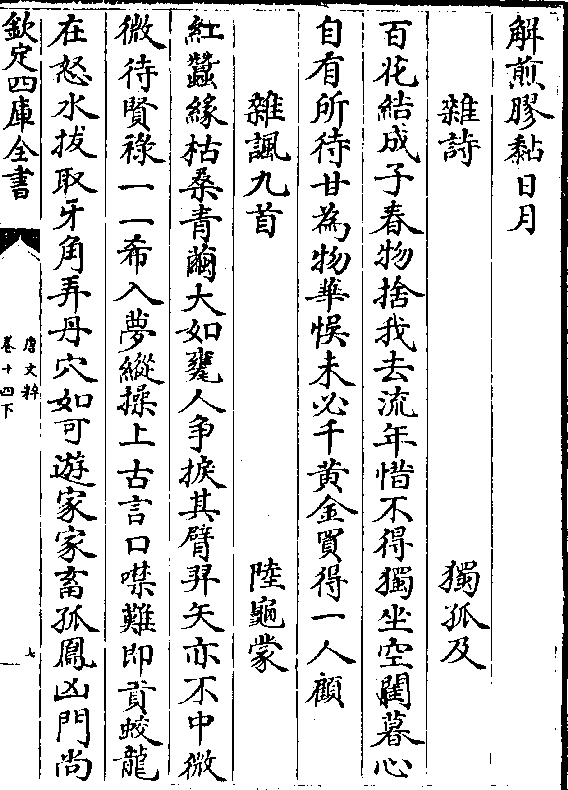 解煎膠黏日月
雜詩 獨孤及
百花結成子春物捨我去流年惜不得獨坐空閨暮心
自有所待甘為物華悞未必千黄金買得一人顧
雜諷九首 陸龜蒙
紅蠶緣枯桑青繭大如甕人争捩其臂羿矢亦不中微
微待賢禄一一希入夢縱操上古言口噤難即貢蛟龍
在怒水拔取牙角弄丹穴如可遊家家畜孤鳳凶門尚
欽定四庫全書
唐文粹
卷十四下
七